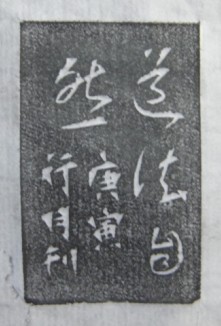 道法自
然
庚寅
行月刊